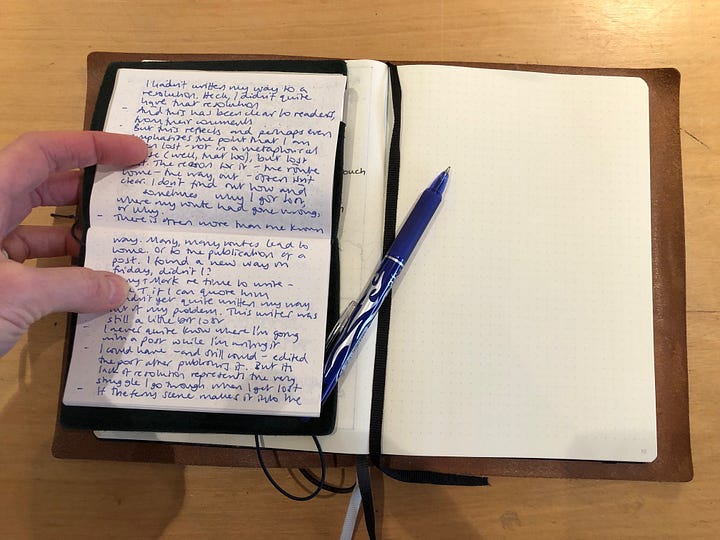 I hadn't written my way to a
resolution. Heck, I didn't quite
have that resolution
- And this has been clear to readers,
from their comments
- But this reflects and perhaps even
emphasizes the point that I am
lost - not in a metaphorical
(well, that too), but lost
The reason for it - the route
home - the way out - often isn't
clear. I don't find out how and
sometimes why I got lost,
where my route had gone wrong,
or why.
- There is often more than one known
way. Many, many routes lead to
home. Or to the publication of a
post. I found a new way on
Friday, didn't I?
+ Mark re time to write -
T, if I can quote him
yet quite written my way
out of my problem. This writer was
still a little bit lost
- I never quite know where I'm going
with a post while I'm writing it
- I could have - and still could - edited
the post after publishing it. But its
lack of resolution represents the very
struggle I go through when I get lost
- If the ferry scene makes it into the
ouch